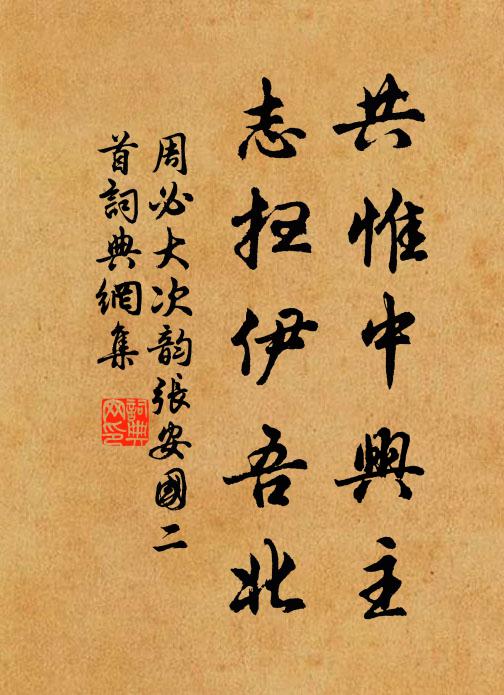 共惟中興主
志扫伊吾北
周必大次韵張安國二
首詞典網集
詞典
网印